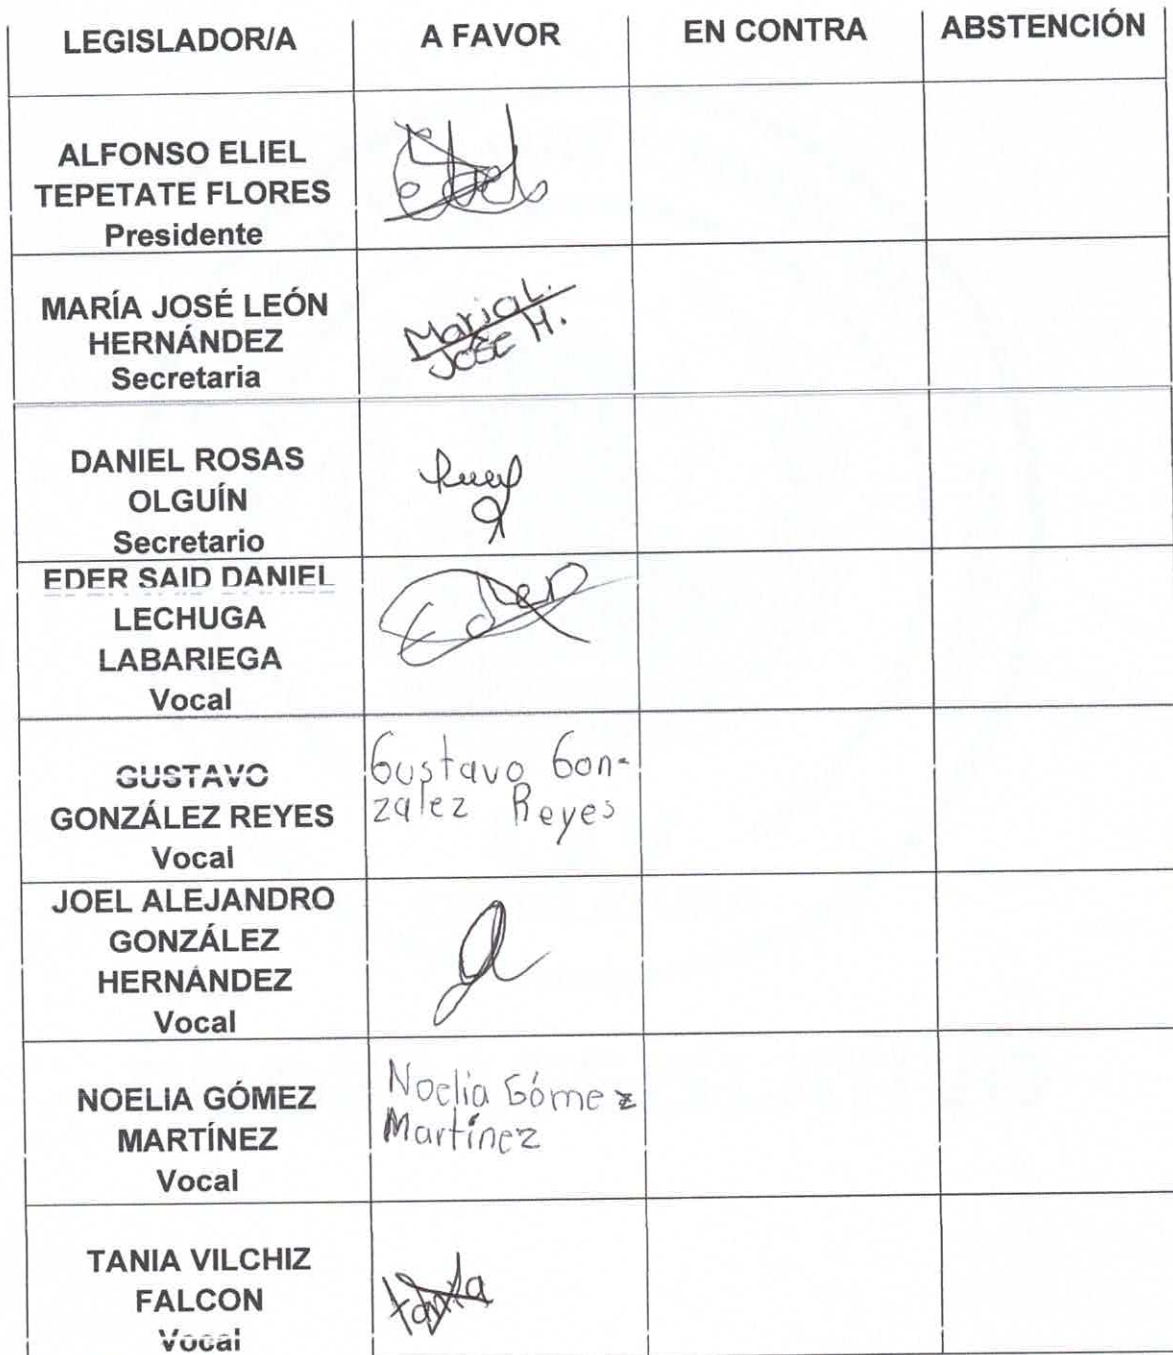 LEGISLADOR/A A FAVOR EN CONTRA ABSTENCIÓN
ALFONSO ELIEL
TEPETATE FLORES
Presidente
MARÍA JOSÉ LEÓN
HERNÁNDEZ
Secretaria
Maria L.
José H.
DANIEL ROSAS
OLGUÍN
Secretario
EDER SAID DANIEL
LECHUGA
LABARIEGA
Vocal
Eder
GUSTAVO
GONZÁLEZ REYES
Vocal
Gustavo Gon-
zalez Reyes
JOEL ALEJANDRO
GONZÁLEZ
HERNÁNDEZ
Vocal
NOELIA GÓMEZ
MARTÍNEZ
Vocal
Noelia Gómez
Martínez
TANIA VILCHIZ
FALCON
Vocal
tania